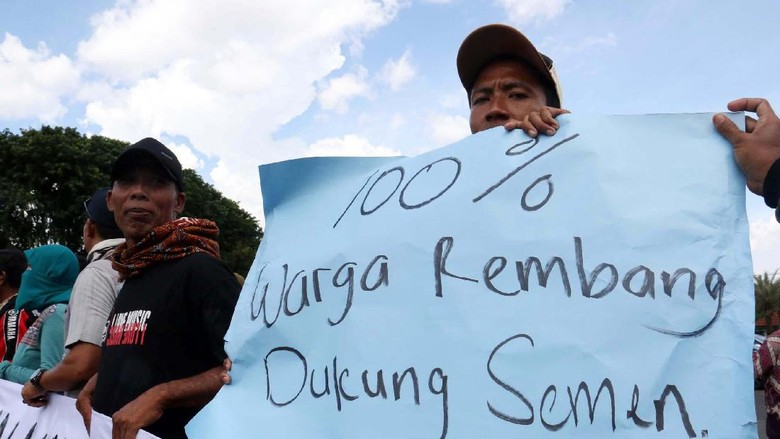 100%
Warga Rembang
Dukung Semen.
MUSIC